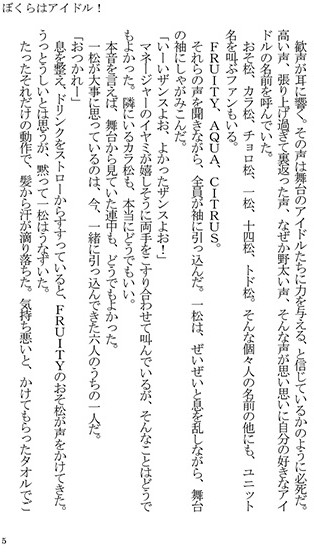 ぼくらはアイドル！
歓声が耳に響く。その声は舞台のアイドルたちに力を与える、と信じているかのように必死だ。
高い声、張り上げ過ぎて裏返った声、なぜか野太い声、そんな声が思い思いに自分の好きなアイ
ドルの名前を呼んでいた。
おそ松、カラ松、チョロ松、一松、十四松、トド松。そんな個々人の名前の他にも、ユニット
名を叫ぶファンもいる。
FRUITY、AQUA、CITRUS。
それらの声を聞きながら、全員が袖に引っ込んだ。一松は、ぜいぜいと息を乱しながら、舞台
の袖にしゃがみこんだ。
「いーいザンスよお、よかったザンスよお！」
マネージャーのイヤミが嬉しそうに両手をこすり合わせて叫んでいるが、そんなことはどうで
もよかった。隣にいるカラ松も、本当にどうでもいい。
本音を言えば、舞台から見ていた連中も、どうでもよかった。
一松が大事に思っているのは、今、一緒に引っ込んできた六人のうちの一人だ。
「おつかれー」
息を整え、ドリンクをストローからすすっていると、FRUITYのおそ松が声をかけてきた。
うっとうしいとは思うが、黙って一松はうなずいた。
たったそれだけの動作で、髪から汗が滴り落ちた。気持ち悪いと、かけてもらったタオルでご
5